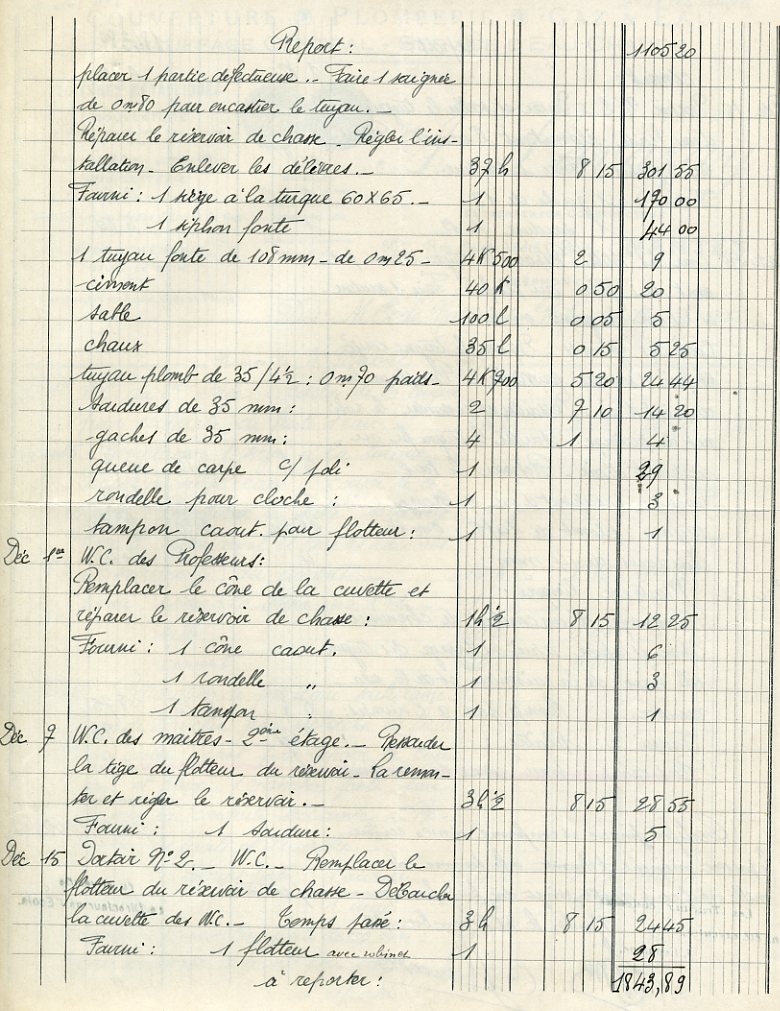 Report : 1105 20
placer 1 partie défectueuse. - Faire 1 saignée
de 0m80 pour encastrer le tuyau. -
Réparer le réservoir de chasse - Régler l'ins-
tallation - Enlever les délivres. - 37 h 8 15 301 55
Fourni : 1 siège à la turque 60 X 65. - 1 170 00
1 siphon fonte 1 44 00
1 tuyau fonte de 108 mm - de 0m25 - 4K500 2 9
ciment 40 K 0 50 20
sable 100 l 0 05 5
chaux 35 l 0 15 5 25
tuyau plomb de 35 / 4½ : 0m70 poids - 4K700 5 20 24 44
soudures de 35 mm : 2 7 10 14 20
gaches de 35 mm : 4 1 4
queue de carpe c/ poli 1 29
rondelle pour cloche : 1 3
tampon caout. pour flotteur : 1 1
Déc 1er W.C. des Professeurs :
Remplacer le cône de la cuvette et
réparer le réservoir de chasse : 1h½ 8 15 12 25
Fourni : 1 cône caout. 1 6
1 rondelle " 1 3
1 tampon " 1 1
Déc 7 W.C. des maitres - 2ème étage. - Ressouder
la tige du flotteur du réservoir - La remon-
ter et régler le réservoir. - 3h½ 8 15 28 55
Fourni : 1 soudure : 1 5
Déc 15 Dortoir N° 2. - W.C. - Remplacer le
flotteur du réservoir de chasse - Déboucher
la cuvette des W.C. - Temps passé : 3h 8 15 24 45
Fourni : 1 flotteur avec robinet 1 28
à reporter : 1843,89